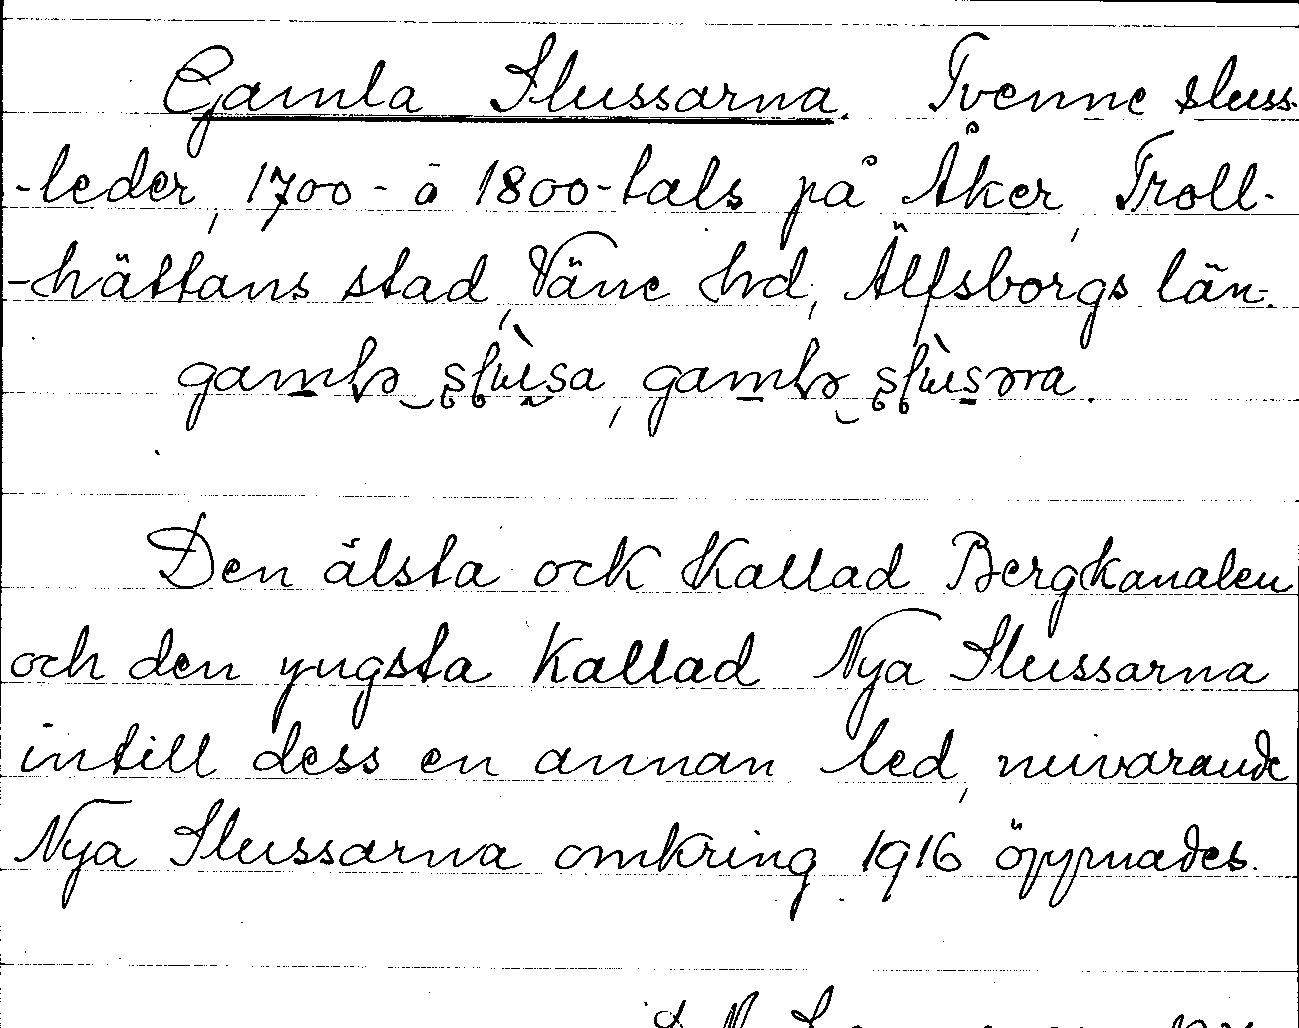 Gamla Slussarna. Tvenne sluss-
-leder, 1700- o 1800-tals på Åker, Troll-
-hättans stad, Väne hd, Älfsborgs län.
Den älsta ock kallad Bergkanalen
och den yngsta kallad Nya Slussarna
intill dess en annan led, nuvarande
Nya Slussarna omkring 1916 öppnades.